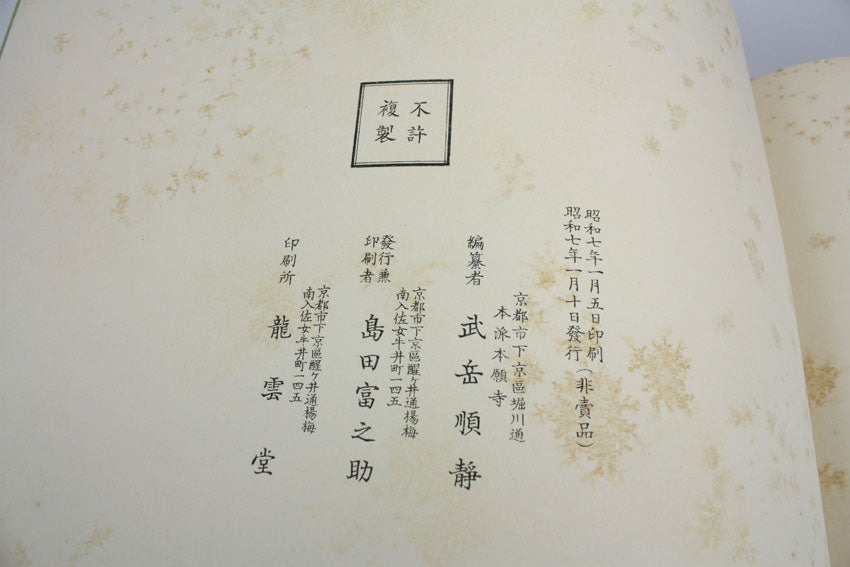 不許
複製
昭和七年一月五日印刷
昭和七年一月十日發行（非賣品）
京都市下京區堀川通
本派本願寺
編纂者
武岳順靜
京都市下京區醒ヶ井通楊梅
南入佐女牛井町一四五
發行兼
印刷者
島田富之助
京都市下京區醒ヶ井通楊梅
南入佐女牛井町一四五
印刷所
龍雲堂